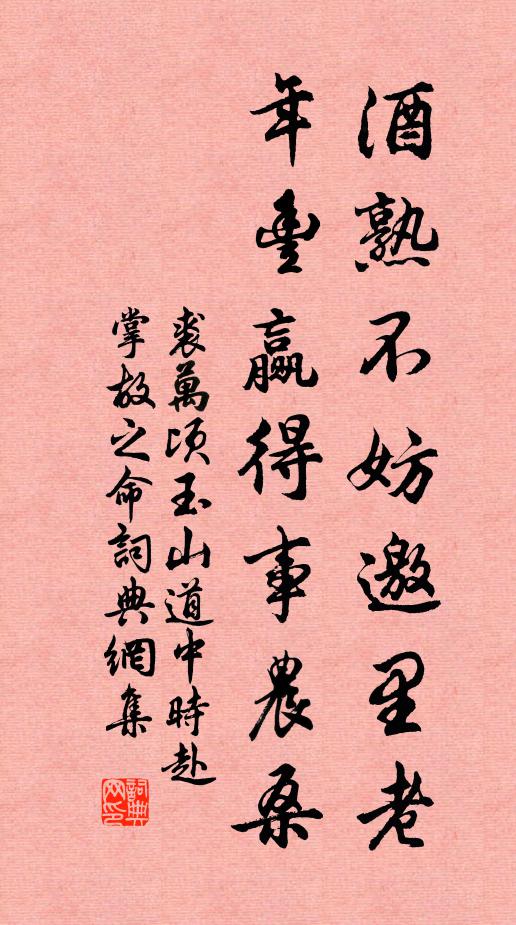 酒熟不妨邀里老
年豐贏得事農桑
裘萬頃玉山道中時赴
掌故之命詞典網集
詞典
网印